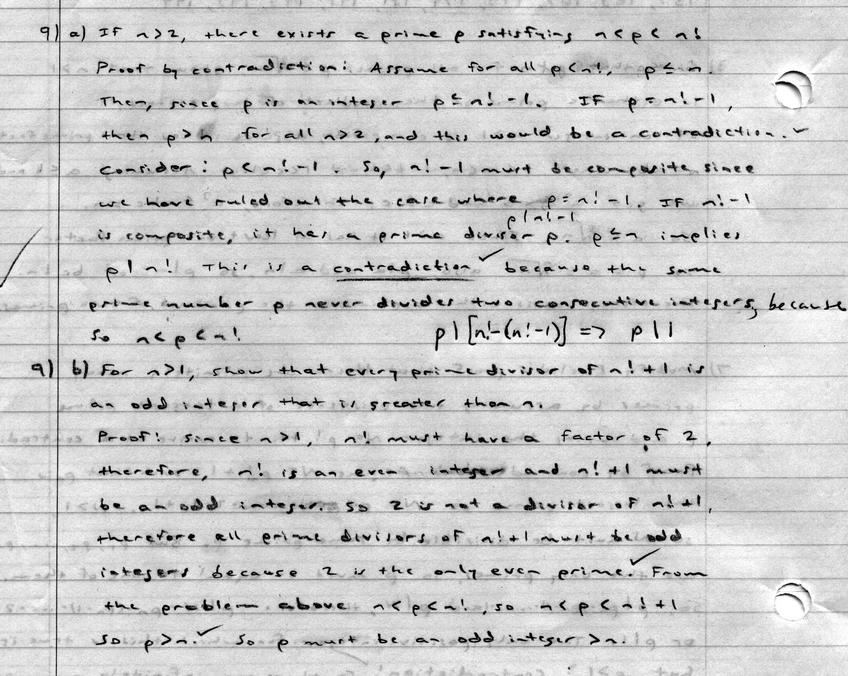 9) a) If n>2, there exists a prime p satisfying n<p<n!
Proof by contradiction: Assume for all p<n!, p≤n.
Then, since p is an integer p≤n!-1. If p=n!-1,
then p>n for all n>2, and this would be a contradiction.✓
Consider: p<n!-1. So, n!-1 must be composite since
we have ruled out the case where p=n!-1. If n!-1
p|n!-1
is composite, it has a prime divisor p. p≤n implies
p|n! This is a contradiction✓ because the same
prime number p never divides two consecutive integers, because
So n<p<n! p|[n!-(n!-1)] => p|1
9) b) For n>1, show that every prime divisor of n!+1 is
an odd integer that is greater than n.
Proof: since n>1, n! must have a factor of 2,
therefore, n! is an even integer and n!+1 must
be an odd integer. So 2 is not a divisor of n!+1,
therefore all prime divisors of n!+1 must be odd
integers because 2 is the only even prime.✓ From
the problem above n<p<n!, so n<p<n!+1
So p>n.✓ So p must be an odd integer >n.